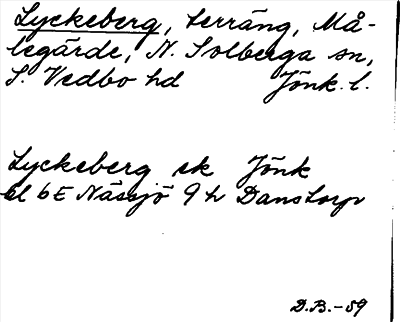 Lyckeberg, terräng, Må-
legärde, N. Solberga sn,
S. Vedbo hd Jönk. l.
Lyckeberg ek Jönk
bl 6E Nässjö 9 h Danstorp
D.B.-59